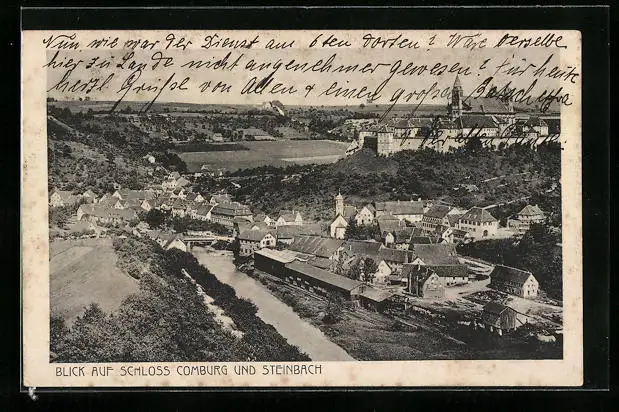 Nun wie war der Dienst am 6ten dorten? Wäre derselbe
hier zu Lande nicht angenehmer gewesen? Für heute
herzl. Grüsse von Allen & einen großen
BLICK AUF SCHLOSS COMBURG UND STEINBACH